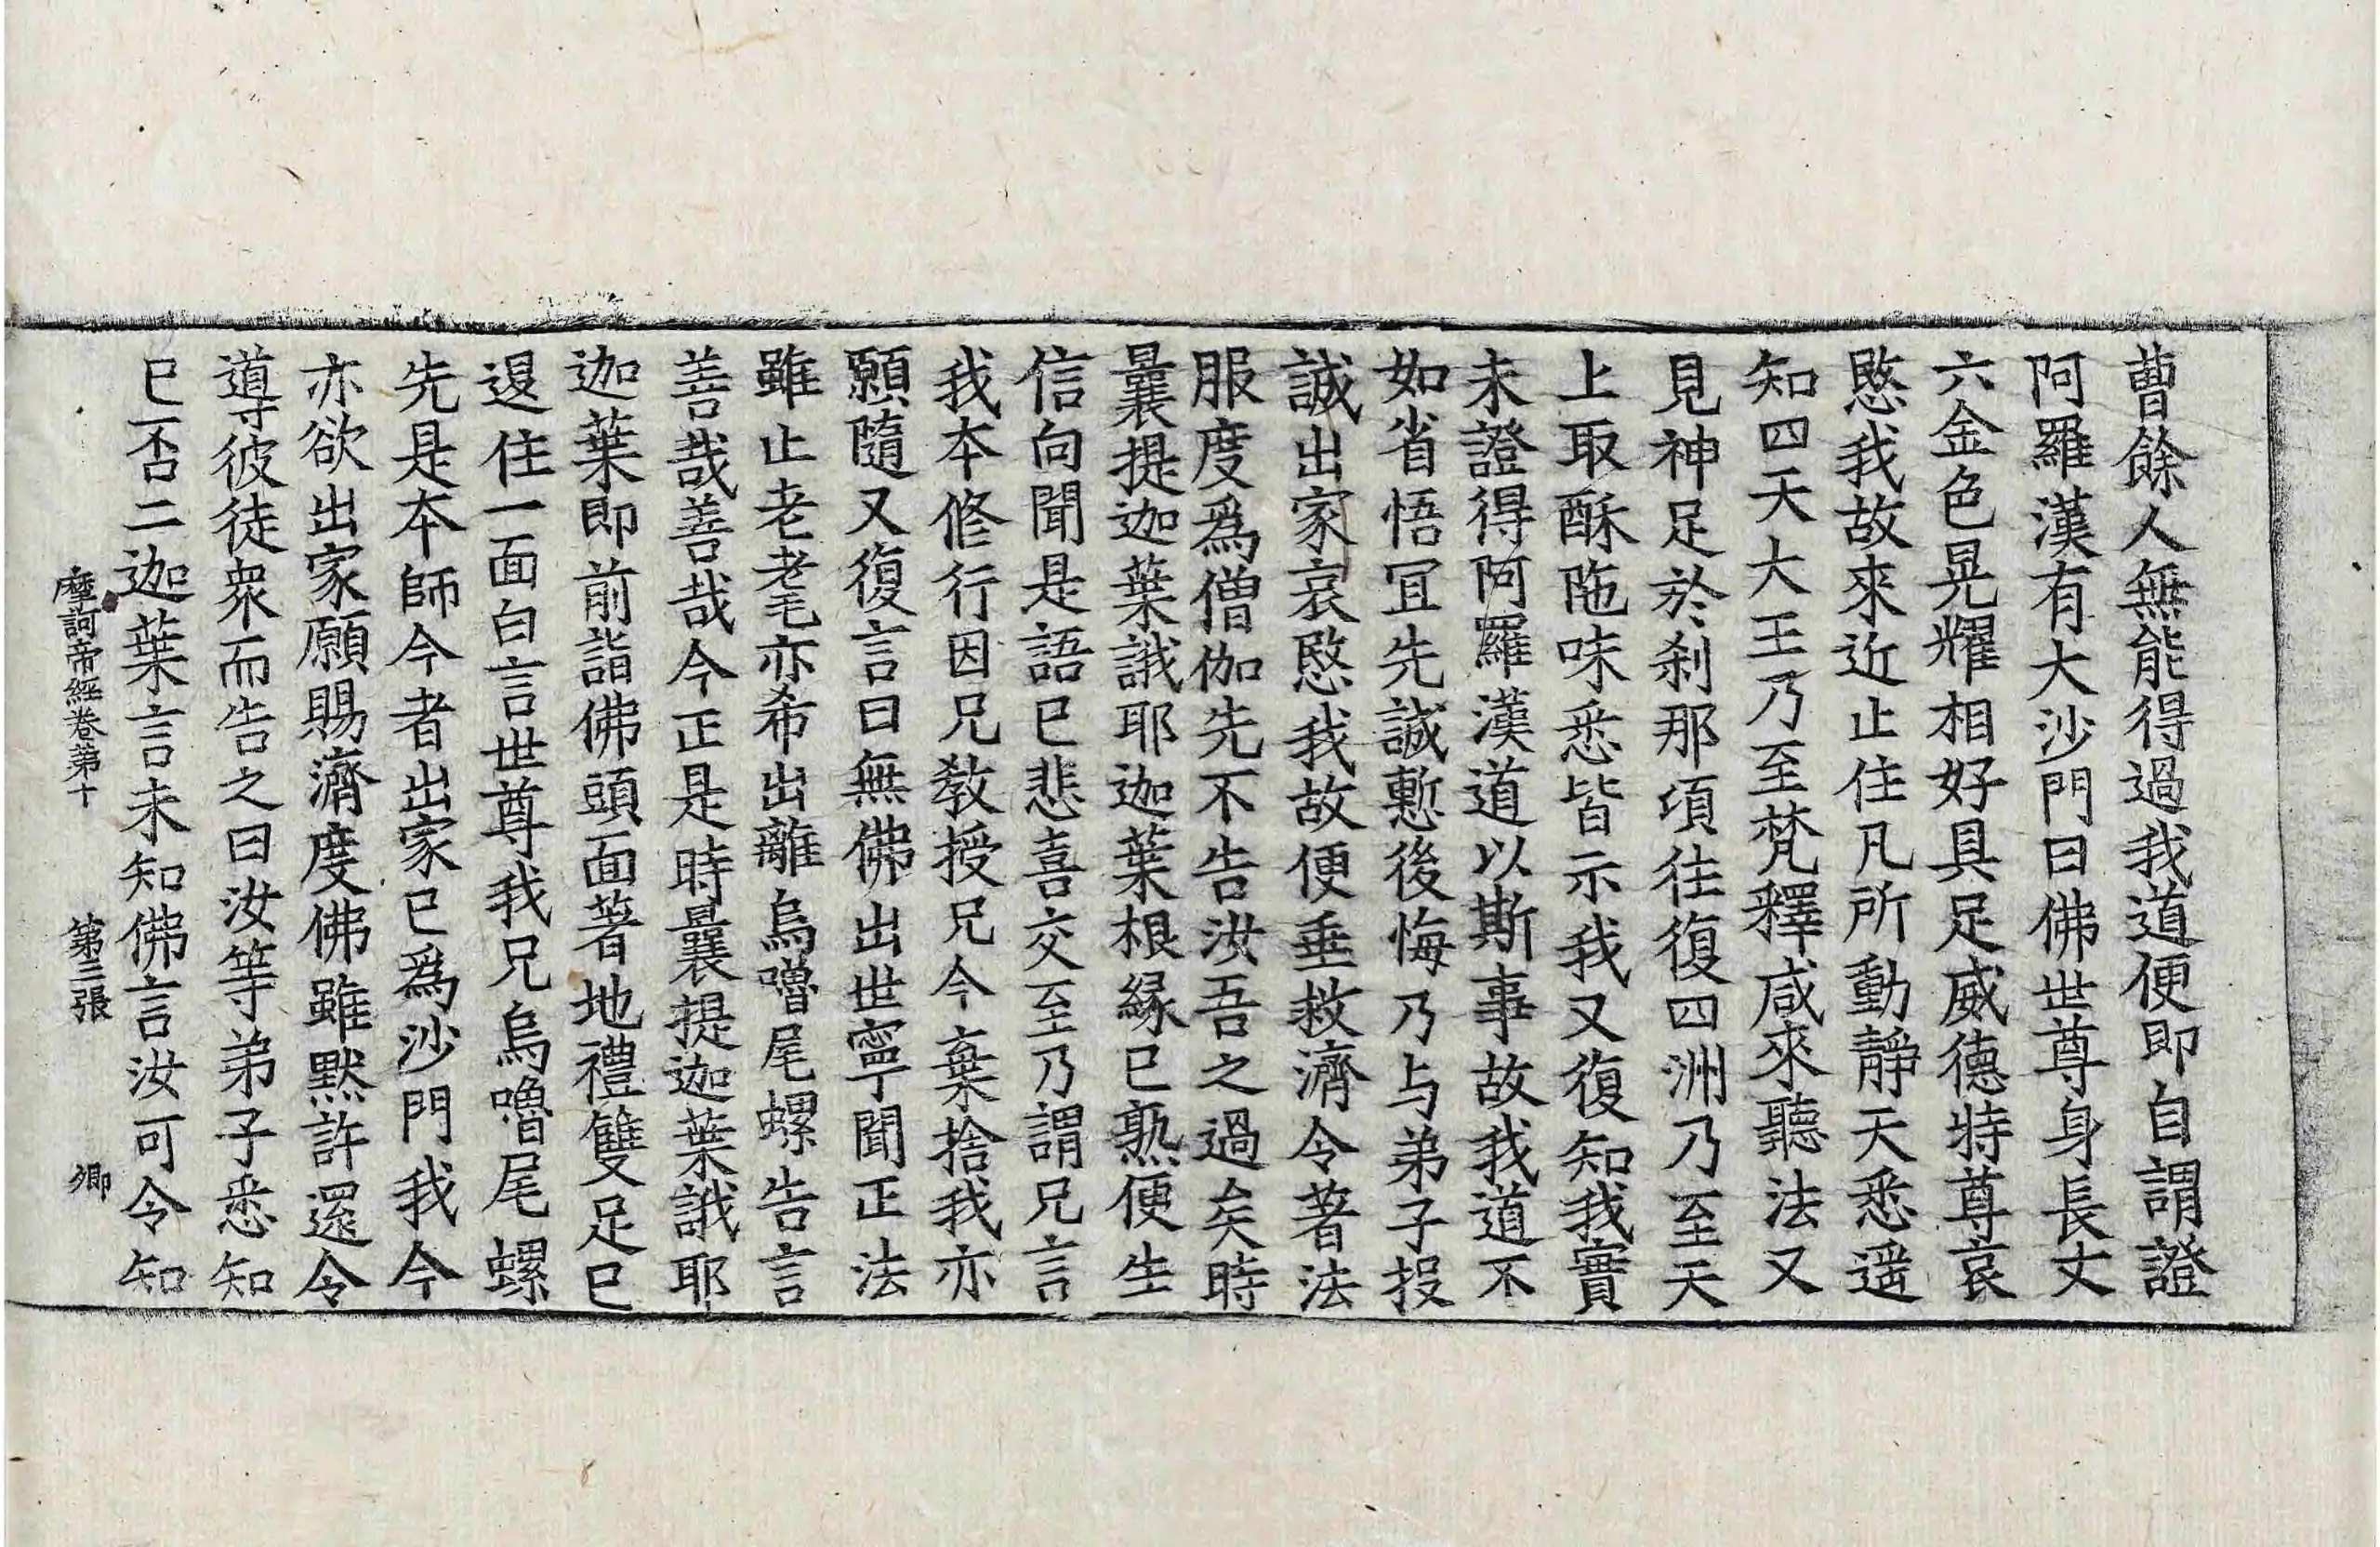 曹餘人無能得過我道便即自謂證
阿羅漢有大沙門曰佛世尊身長丈
六金色晃耀相好具足威德特尊哀
愍我故來近止住凡所動靜天悉遥
知四天大王乃至梵釋咸來聽法又
見神足於刹那頃往復四洲乃至天
上取酥陁味悉皆示我又復知我實
未證得阿羅漢道以斯事故我道不
如省悟冝先誠慙後悔乃与弟子投
誠出家哀愍我故便垂救濟令著法
服度爲僧伽先不告汝吾之過矣時
曩提迦葉誐耶迦葉根縁已熟便生
信向聞是語已悲喜交至乃謂兄言
我本修行因兄教授兄今棄捨我亦
願隨又復言曰無佛出世寧聞正法
雖止老耄亦希出離烏嚕尾螺告言
善哉善哉今正是時曩提迦葉誐耶
迦葉即前詣佛頭面著地禮雙足已
退住一面白言世尊我兄烏嚕尾螺
先是本師今者出家已爲沙門我今
亦欲出家願賜濟度佛雖默許還令
導彼徒衆而告之曰汝等弟子悉知
已否二迦葉言未知佛言汝可令知
摩訶帝經卷第十 第三張 卿